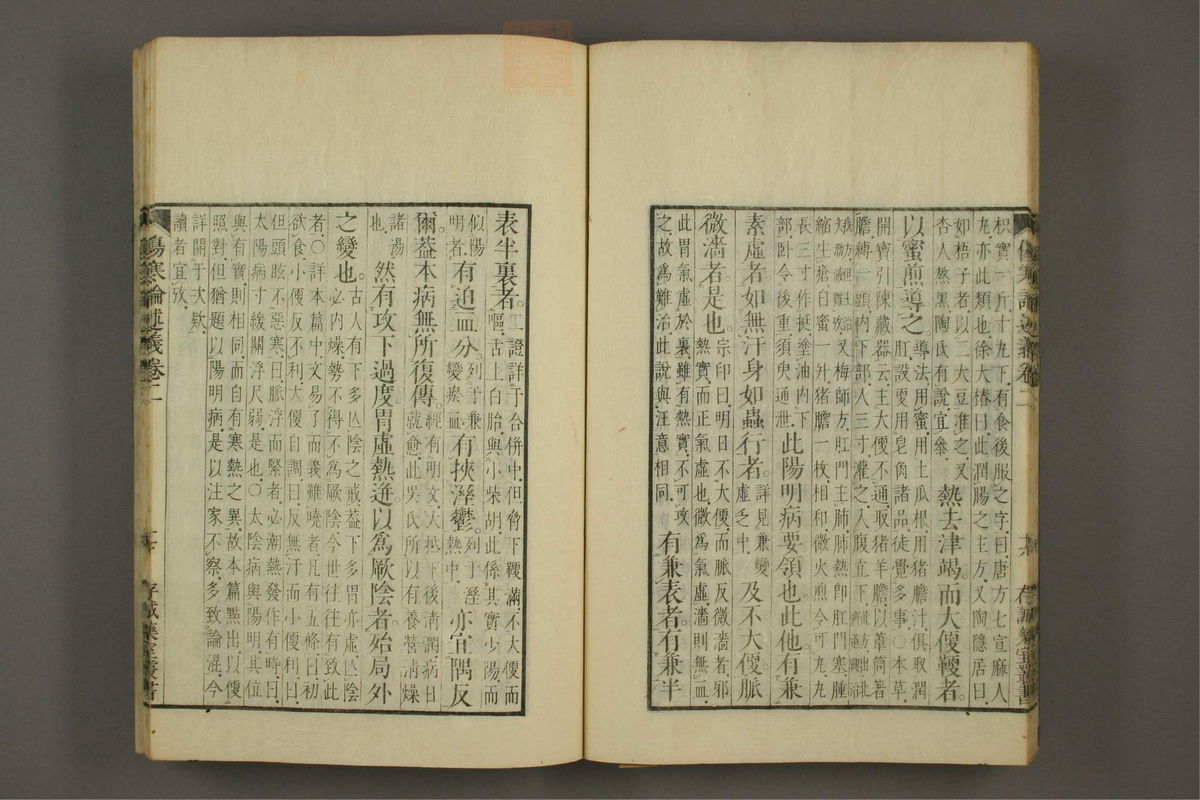 枳實一斤丁九下有食後服之字曰唐方七宣麻人
丸亦此類也徐大椿曰此潤腸之主方又陶隱居曰
如梧子者以二大豆准之又
杏人熬黑陶氏有說宜參 熱去津竭而大便鞕者
以蜜煎導之 導法用蜜用土瓜根用猪膽汁俱取潤
肛設要用皂肉諸品徒覺多事○本草
開寶引陳藏器云主大便不通取猪羊膽以葦筒著
膽縛一頭內下部入三寸灌之入腹立下
疾又梅師方肛門主肺肺熱即肛門塞腫
縮生瘡白蜜一升猪膽一枚相和微火煎令可丸
長三寸作挺塗油內下
部臥令後重須臾通泄 此陽明病要領也此他有兼
素虛者如無汗身如蟲行者 詳見兼變
虛乏中 及不大便脈
微濇者是也 宗印曰明日不大便而脈反微濇者邪
熱實而正氣虛也微爲氣虛濇則無血
此胃氣虛於裏雖有熱實不可攻
之故爲難治此說與汪意相同 有兼表者有兼半
傷寒論述義卷二 存誠藥室叢書
表半裏者 二證詳于合併中但脅下鞕滿不大便而
嘔舌上白胎與小柴胡此係其實少陽而
似陽
明者 有迫血分 列于兼
變瘀血 有挾溼鬱 列于溼
熱中 亦宜隅反
爾蓋本病無所復傳 經有明文大抵下後清潤病日
就愈此吳氏所以有養營清燥
諸湯
也 然有攻下過度胃虛熱迸以爲厥陰者始局外
之變也 古人有下多亾陰之戒蓋下多胃亦虛亾陰
必內燥勢不得不爲厥陰今世往往有致此
者○詳本篇中文易了而義難曉者凡有五條曰初
欲食小便反不利大便自調曰反無汗而小便利曰
但頭眩不惡寒曰脈浮而緊者必潮熱發作有時曰
太陽病寸緩關浮尺弱是也○太陰病與陽明其位
與有實則相同而自有寒熱之異故本篇點出以便
照對但猶題以陽明病是以注家不察多致論混今
詳開于次欵
讀者宜攷
傷寒論述義卷二 十七 存誠藥室叢書